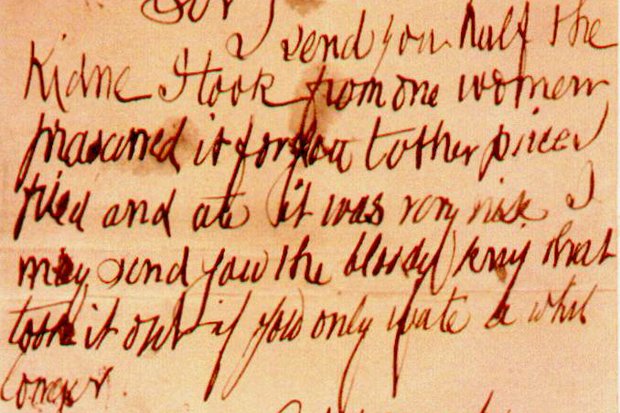 Sor
I send you half the
Kidne I took from one women
prasarved it for you tother piece I
fried and ate it was very nise I
may send you the bloody knif that
took it out if you only wate a whil
longer.